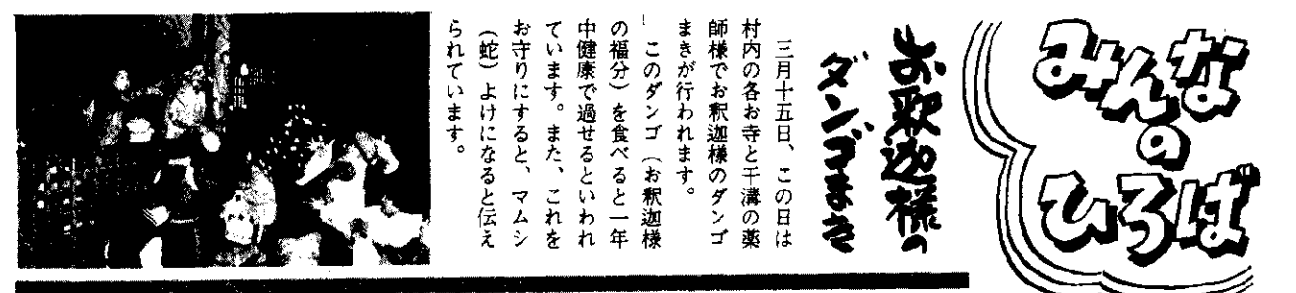 みんな
の
ひろば
お釈迦様の
ダンゴまき
三月十五日、この日は
村内の各お寺と干溝の薬
師様でお釈迦様のダンゴ
まきが行われます。
このダンゴ（お釈迦様
の福分）を食べると一年
中健康で過せるといわれ
ています。また、これを
お守りにすると、マムシ
（蛇）よけになると伝え
られています。